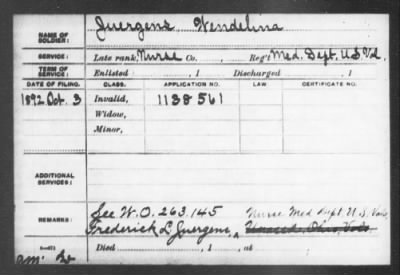 NAME OF SOLDIER: Juergens, Wendelina
SERVICE: Late rank, Nurse Co. , Reg't Med. Dept. U.S. Vol.
TERM OF SERVICE: Enlisted , 1 Discharged , 1
DATE OF FILING. CLASS. APPLICATION NO. LAW. CERTIFICATE NO.
1892 Oct. 3 Invalid, 1138561
Widow,
Minor,
ADDITIONAL SERVICES:
REMARKS: See W.O. 263.145 Nurse Med Dept U.S. Vols,
Frederick L. Juergens, Ohio, Vols.
Died , 1 , at